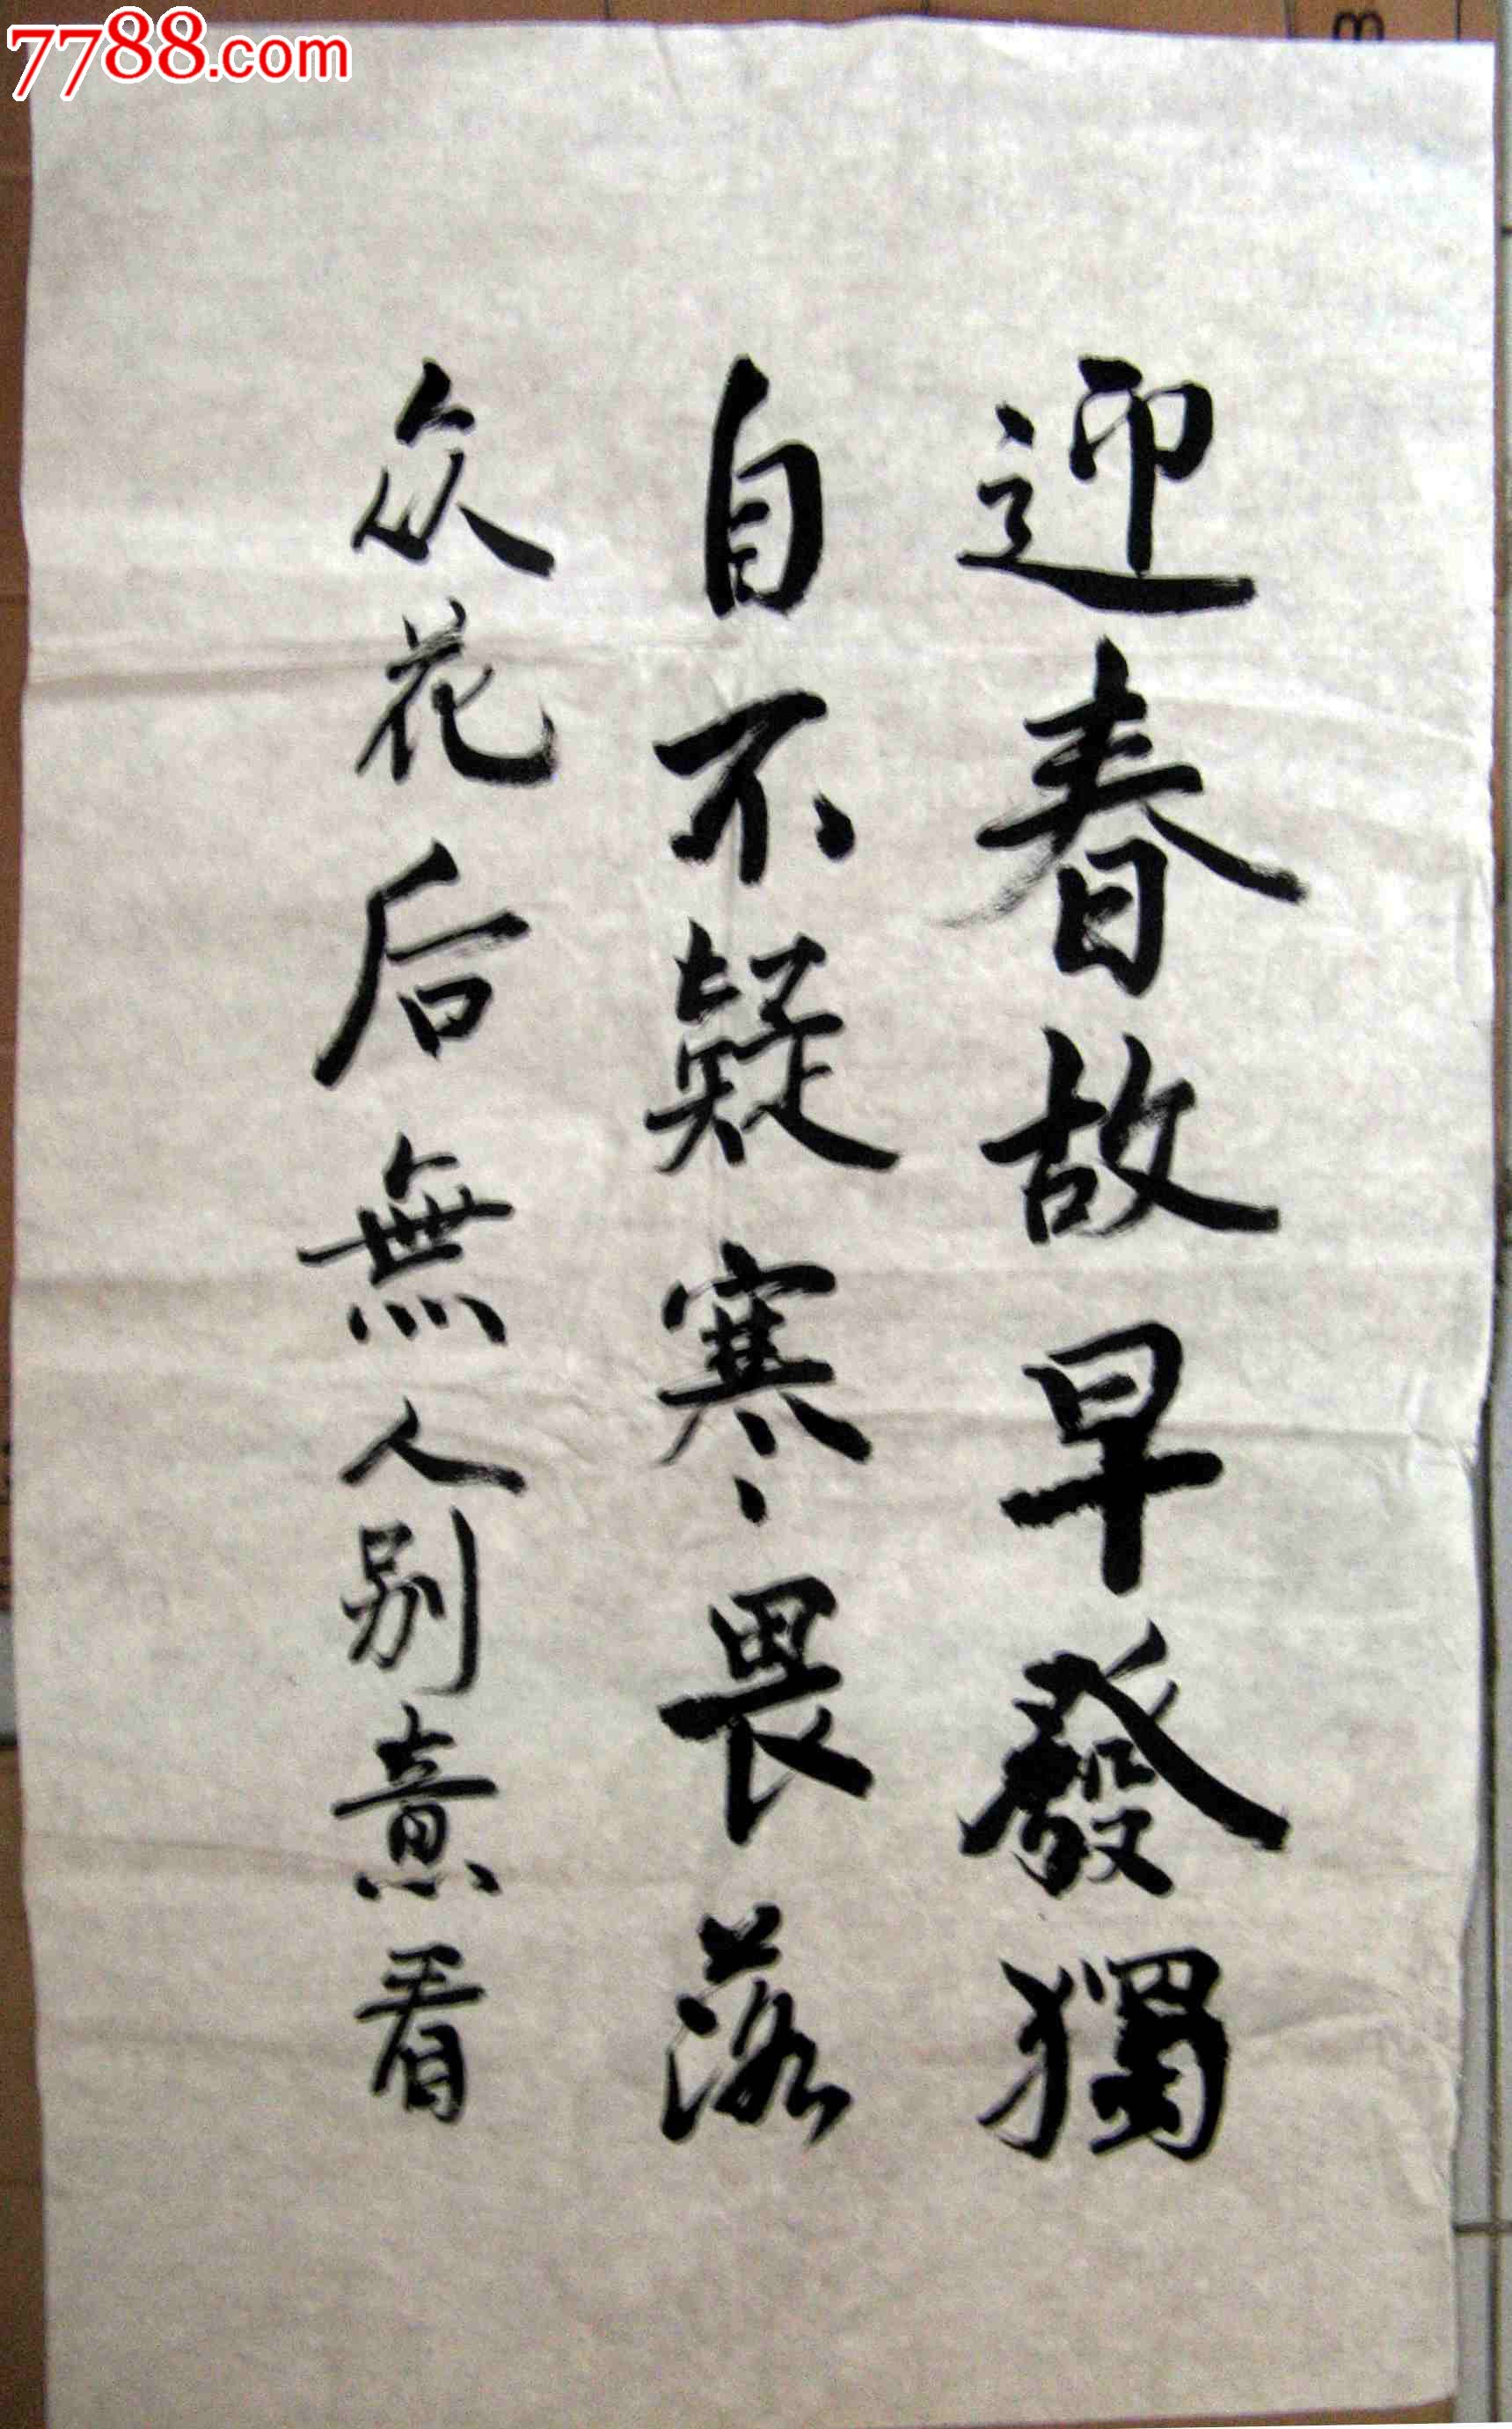 7788.com
迎春故早發獨
自不疑寒畏落
众花后無人别意看